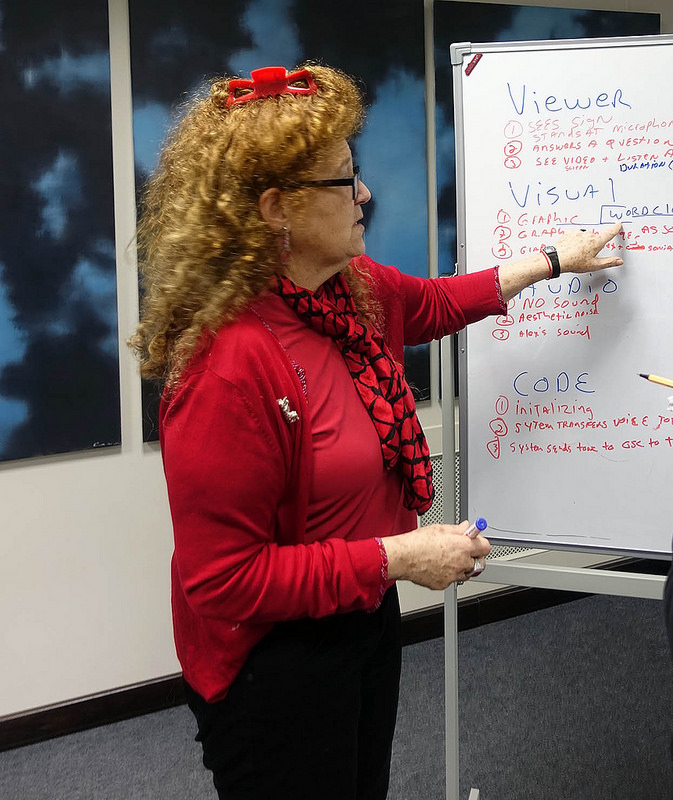 VIEWER
① SEES SIGN
STANDS AT microphon
② ANSWERS A QUESTION
③ SEE VIDEO + LISTEN A
DURATION (
VISUAL
① GRAPHIC WORDCLO
② GRAPH AS SO
③ socia
AUDIO
① NO SOUND
② Aesthetic noise
③ Alex's sound
CODE
① initalizing
② SYSTEM TRANSFERS VOICE TO
③ System sends to GSC to t